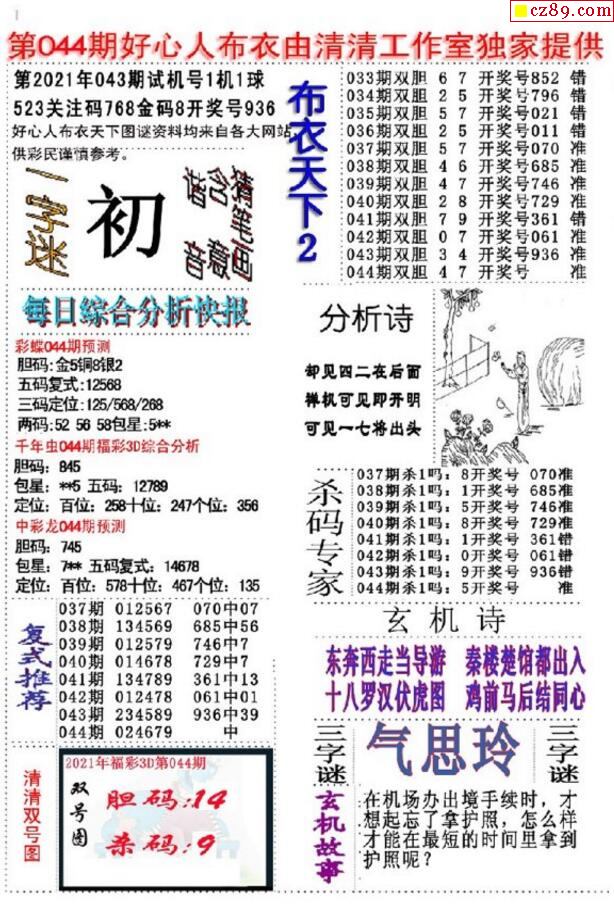 cz89.com
第044期好心人布衣由清清工作室独家提供
第2021年043期试机号1机1球
523关注码768金码8开奖号936
好心人布衣天下图谜资料均来自各大网站
供彩民谨慎参考。
一字迷
初
猜笔画
含意
谐音
布衣天下2
033期双胆 6 7 开奖号852 错
034期双胆 2 5 开奖号796 错
035期双胆 5 7 开奖号021 错
036期双胆 2 5 开奖号011 错
037期双胆 5 7 开奖号070 准
038期双胆 4 6 开奖号685 准
039期双胆 4 7 开奖号746 准
040期双胆 2 8 开奖号729 准
041期双胆 7 9 开奖号361 错
042期双胆 0 7 开奖号061 准
043期双胆 3 4 开奖号936 准
044期双胆 4 7 开奖号 准
每日综合分析快报
彩蝶044期预测
胆码:金5铜8银2
五码复式:12568
三码定位:125/568/268
两码:52 56 58包星:5**
千年虫044期福彩3D综合分析
胆码：845
包星：**5 五码：12789
定位：百位：258十位：247个位：356
中彩龙044期预测
胆码：745
包星：7** 五码复式：14678
定位：百位：578十位：467个位：135
分析诗
却见四二在后面
禅机可见即开明
可见一七将出头
杀码专家
037期杀1吗：8开奖号 070准
038期杀1吗：1开奖号 685准
039期杀1吗：5开奖号 746准
040期杀1吗：8开奖号 729准
041期杀1吗：1开奖号 361错
042期杀1吗：0开奖号 061错
043期杀1吗：9开奖号 936错
044期杀1吗：5开奖号 准
复式推荐
037期 012567 070中07
038期 134569 685中56
039期 012579 746中7
040期 014678 729中7
041期 134789 361中13
042期 012478 061中01
043期 234589 936中39
044期 024679 中
玄机诗
东奔西走当导游 秦楼楚馆都出入
十八罗汉伏虎图 鸡前马后结同心
清清双号图
2021年福彩3D第044期
双号图
胆码:14
杀码:9
三字谜
气思玲
三字谜
玄机故事
在机场办出境手续时，才
想起忘了拿护照，怎么样
才能在最短的时间里拿到
护照呢？